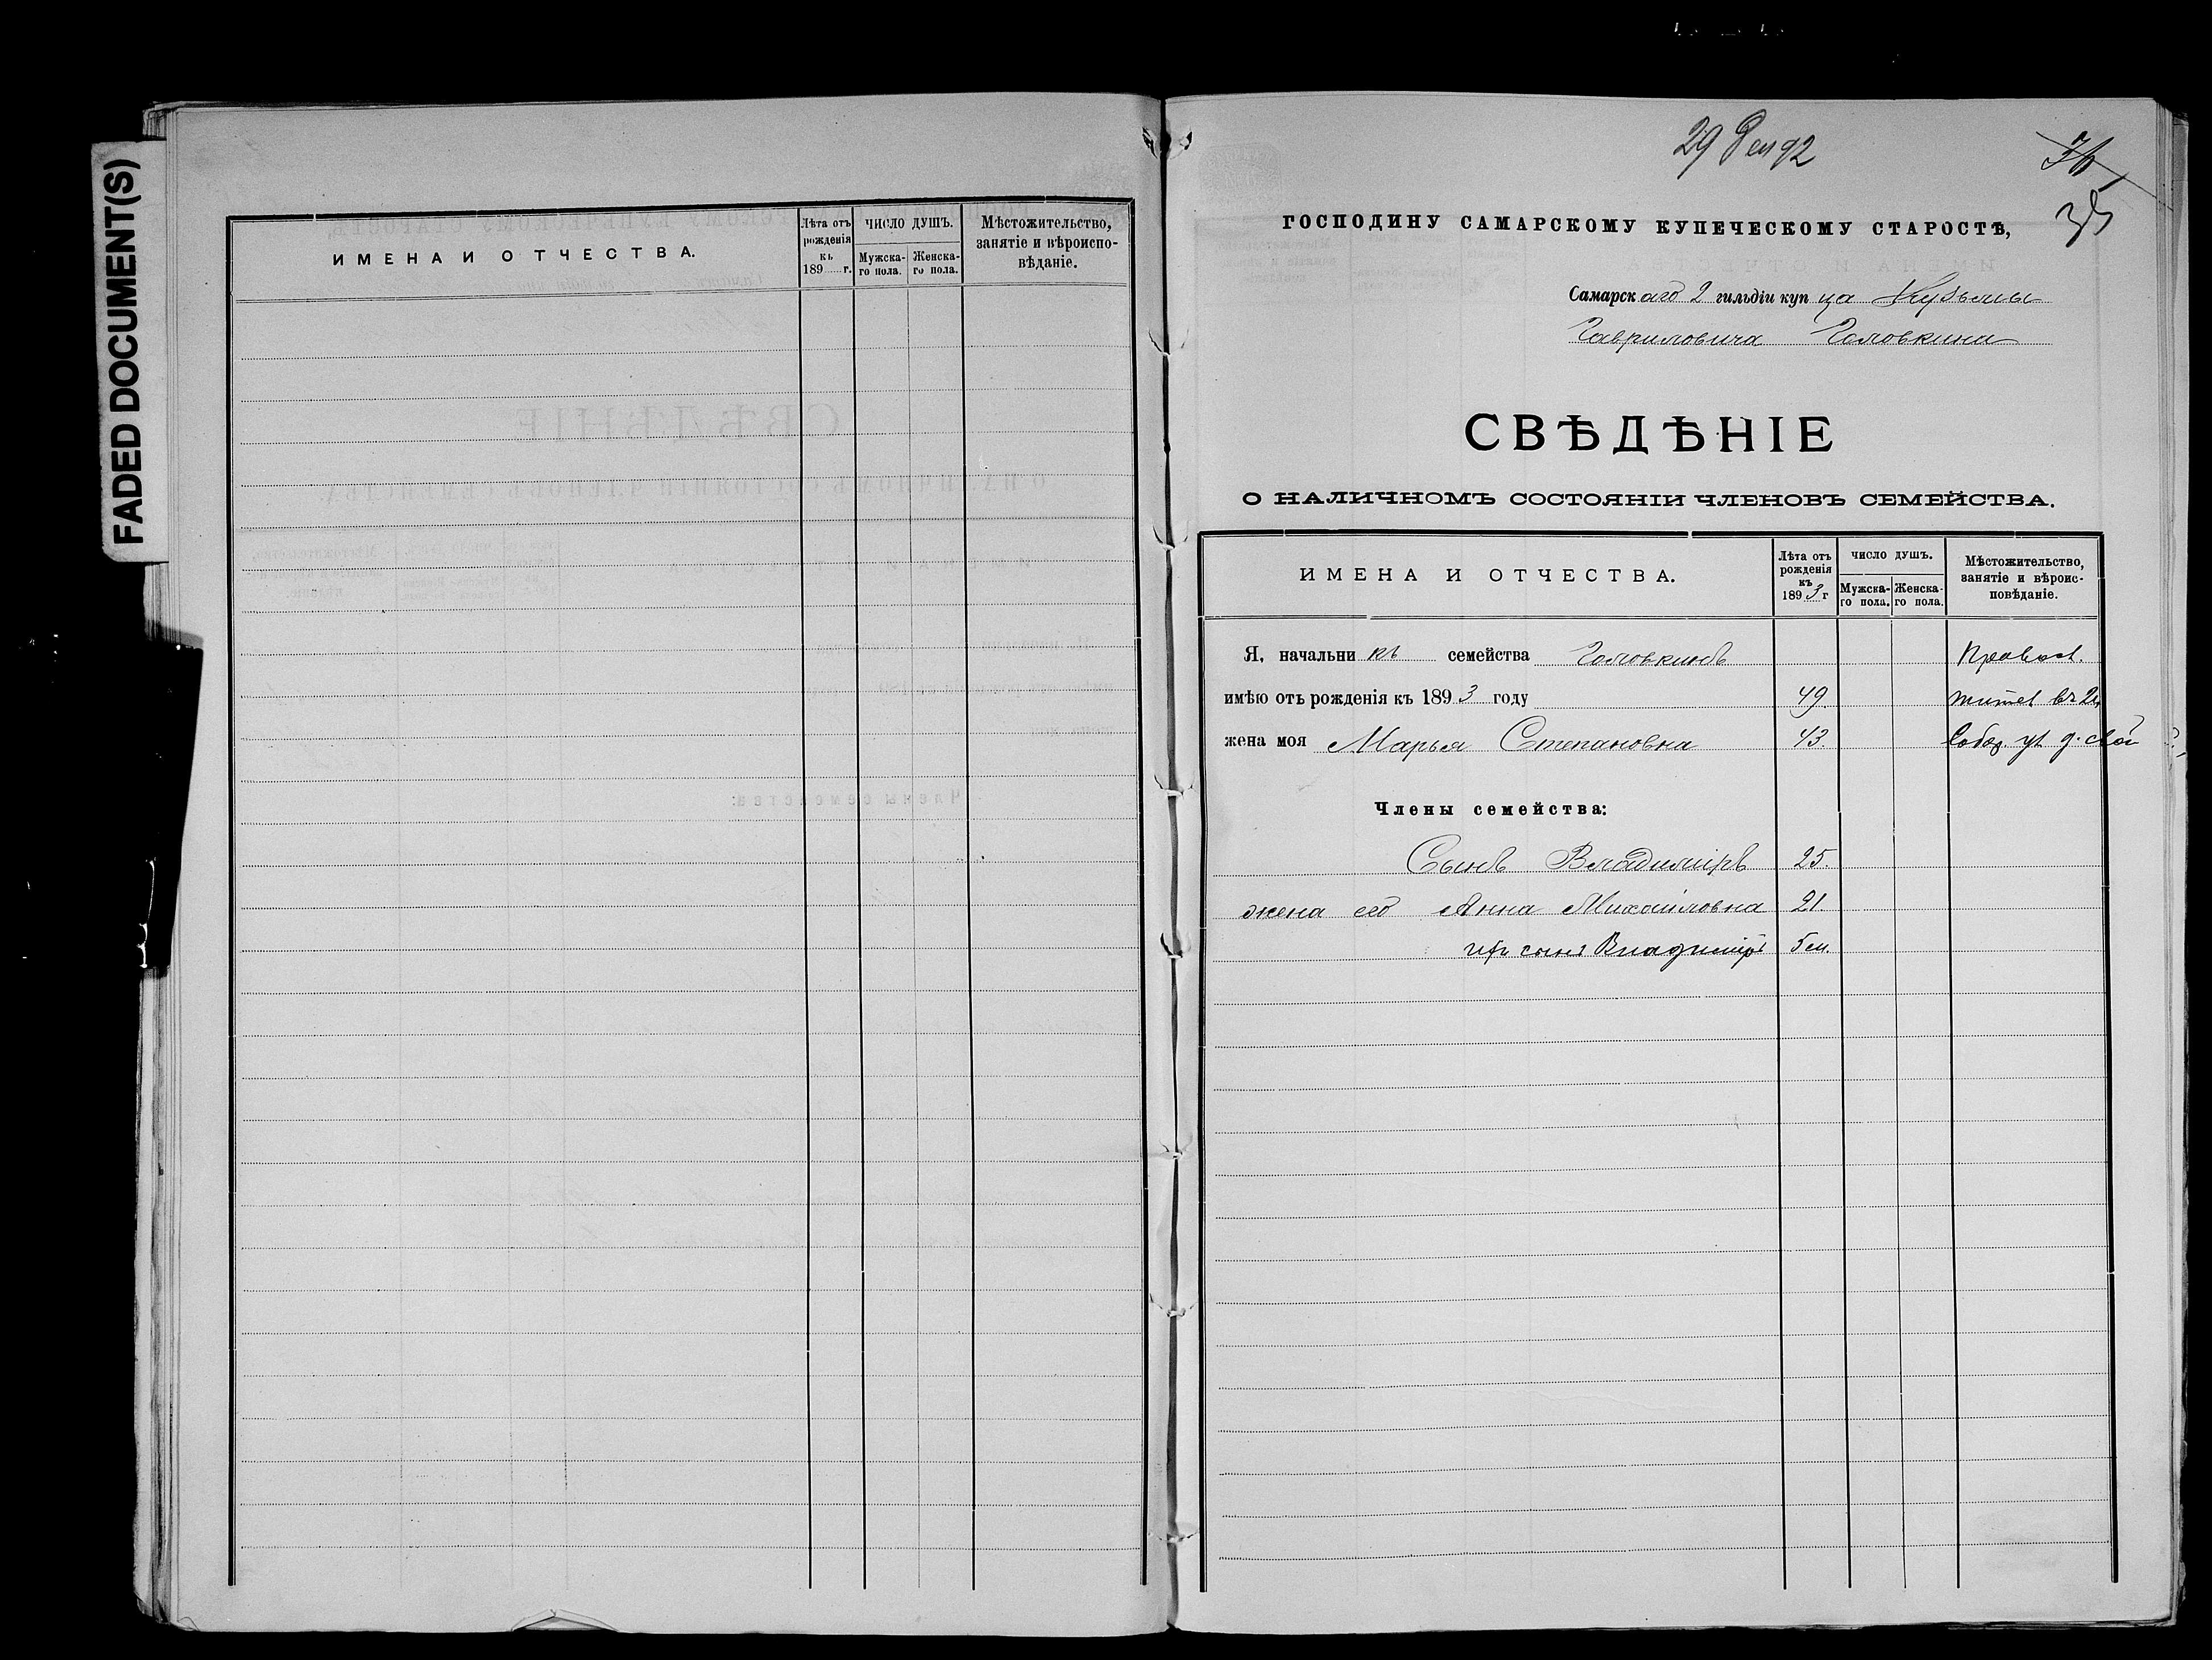 FADED DOCUMENT(S)
ИМЕНА И ОТЧЕСТВА.
Лѣта отъ рожденія къ 189 г.
ЧИСЛО ДУШЪ.
Мужска-го пола.
Женска-го пола.
Мѣстожительство, занятіе и вѣроиспо-вѣданіе.
29 Дек 92
36
35
ГОСПОДИНУ САМАРСКОМУ КУПЕЧЕСКОМУ СТАРОСТѢ,
Самарскаго 2 гильдіи купца Кузьмы
Гавриловича Головкина
СВѢДѢНІЕ
О НАЛИЧНОМЪ СОСТОЯНІИ ЧЛЕНОВЪ СЕМЕЙСТВА.
ИМЕНА И ОТЧЕСТВА.
Лѣта отъ рожденія къ 1893 г
ЧИСЛО ДУШЪ.
Мужска-го пола.
Женска-го пола.
Мѣстожительство, занятіе и вѣроис-повѣданіе.
Я, начальникъ семейства Головкинъ Правосл.
имѣю отъ рожденія къ 1893 году 49.
жена моя Марья Степановна 43. Собор. ул д. свой
Члены семейства:
Сынъ Владиміръ 25.
жена его Анна Михайловна 21.
ихъ сынъ Владиміръ 5 м.